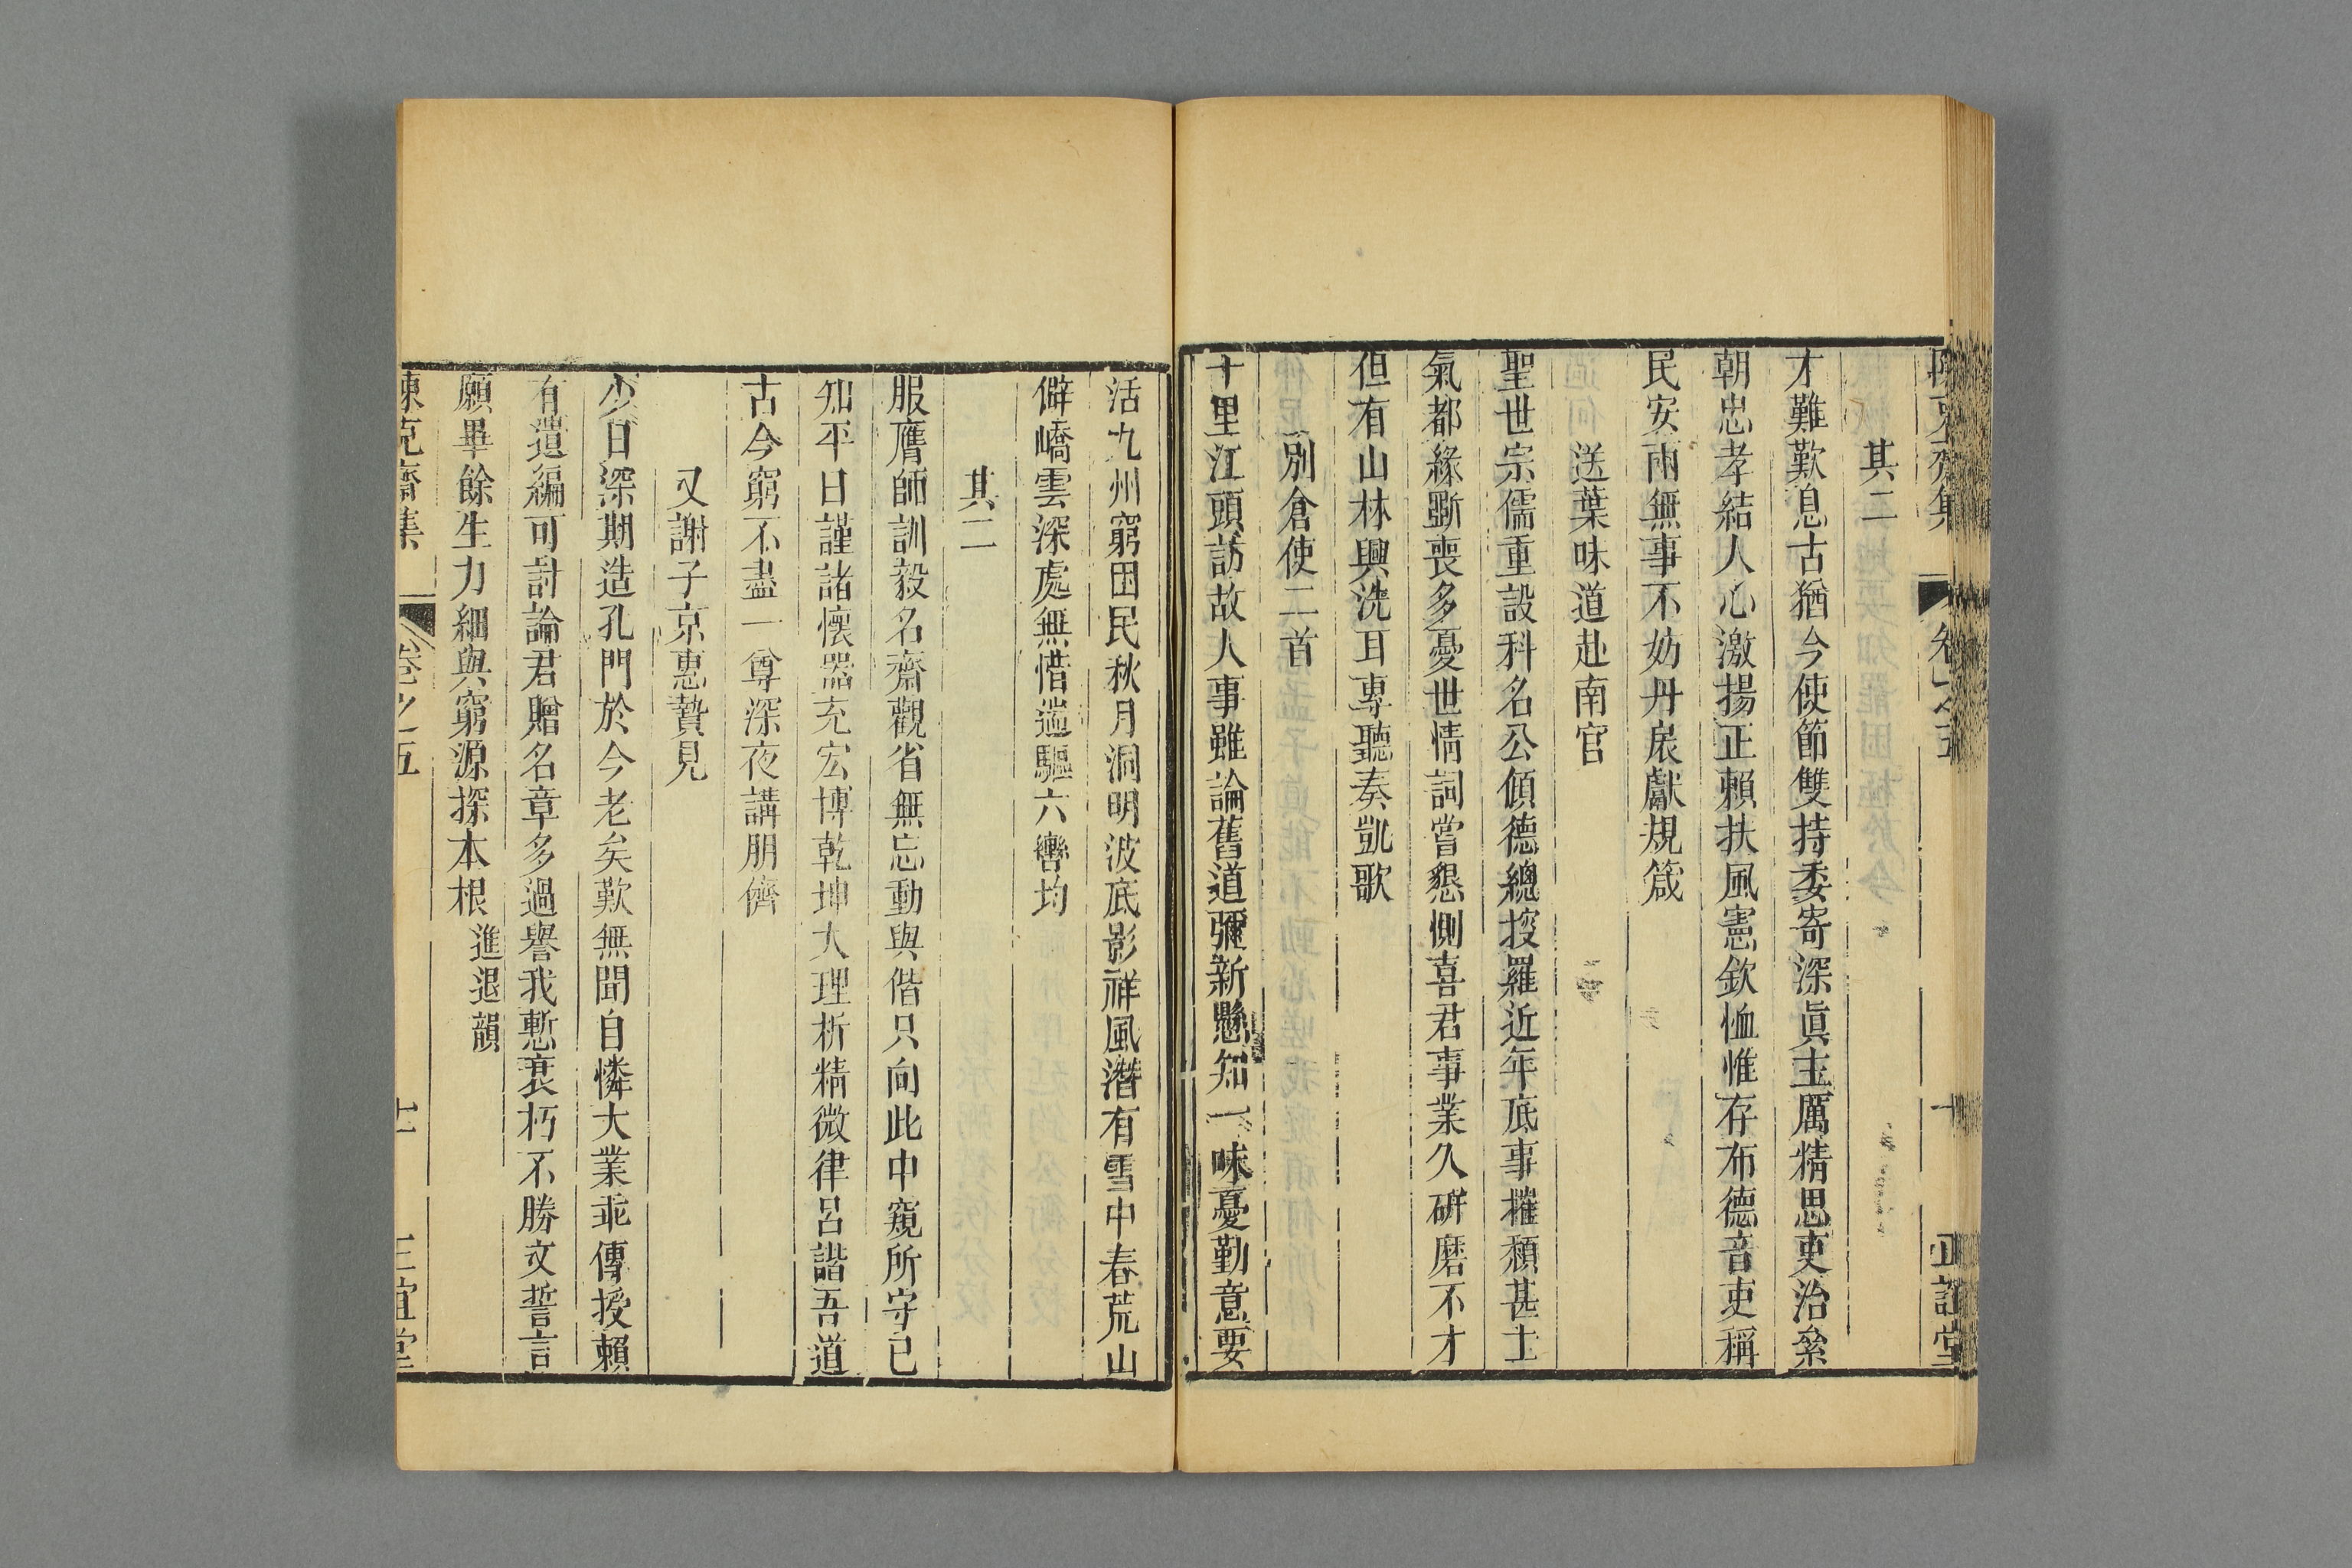 陳克齋集 卷之五 十 正誼堂
其二
才難歎息古猶今使節雙持委寄深眞主厲精思吏治絫
朝忠孝結人心激揚正賴扶風憲欽恤惟存布德音吏稱
民安兩無事不妨丹扆獻規箴
送葉味道赴南宫
聖世宗儒重設科名公傾德總搜羅近年底事摧頹甚士
氣都緣斲喪多憂世情詞嘗懇惻喜君事業久硏磨不才
但有山林興洗耳專聽奏凱歌
別倉使二首
十里江頭訪故人事雖論舊道彌新懸知一味憂勤意要
活九州窮困民秋月洞明波底影祥風潛有雪中春荒山
僻嶠雲深處無惜遄驅六轡均
其二
服膺師訓毅名齋觀省無忘動與偕只向此中窺所守已
知平日謹諸懷器充宏博乾坤大理析精微律呂諧吾道
古今窮不盡一尊深夜講朋儕
又謝子京惠贄見
少日深期造孔門於今老矣歎無聞自憐大業乖傳授賴
有遺編可討論君贈名章多過譽我慙衰朽不勝文誓言
願畢餘生力細與窮源探本根 進退韻
陳克齋集 卷之五 十一 正誼堂